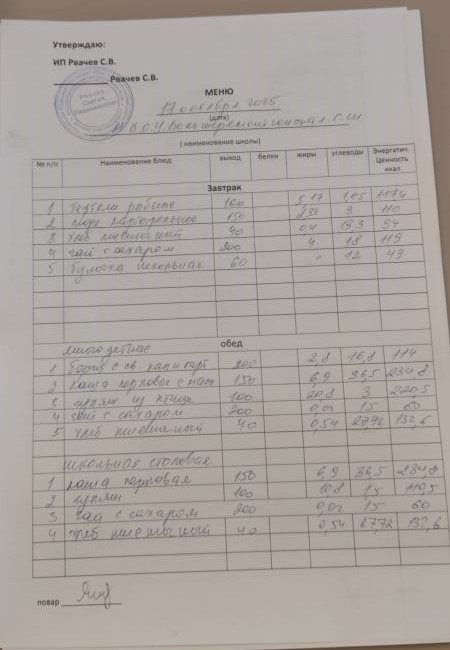 Утверждаю:
ИП Рвачев С.В.
Рвачев С.В.
МЕНЮ
17 октября 2025
(дата)
( наименование школы)
№ п/п Наименование блюд выход белки жиры углеводы Энергетич. Ценность ккал
Завтрак
1 рыбные 100 1,05
2 пюре картофельное 150 3 110
3 хлеб пшеничный 40 0,4 19,3 94
4 чай с сахаром 200 4 18 119
5 булочка школьная 60 12 49
обед
многодетные
1 борщ с св. капуст 200 2,8 16,8 114
2 каша перловая с масл 150 6,9 36,5 234,8
3 гуляш из птицы 100 20,8 3 220,5
4 чай с сахаром 200 0,01 15 60
5 хлеб пшеничный 40 0,54 27,72 132,6
школьная столовая
1 каша перловая 150 6,9 36,5 234,8
2 гуляш 100 10,8 15
3 чай с сахаром 200 0,01 15 60
4 хлеб пшеничный 40 0,54 27,72 132,6
повар